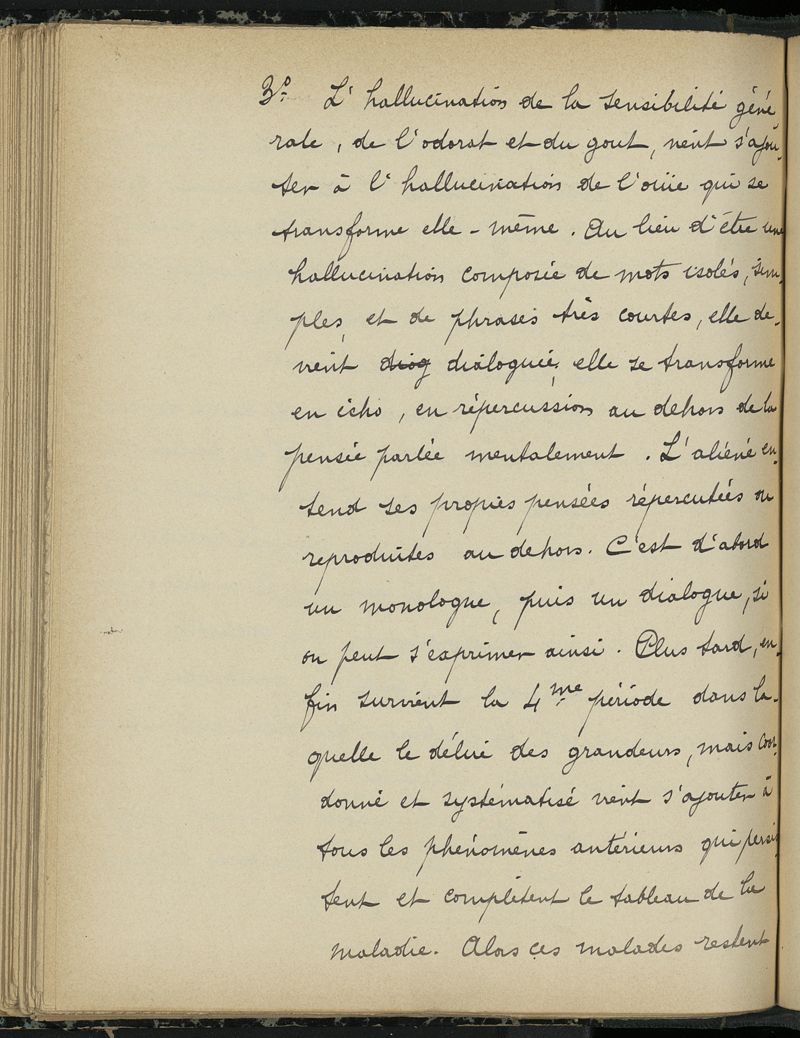 3º- L'hallucination de la sensibilité géné
rale, de l'odorat et du gout, vient s'ajou-
ter à l'hallucination de l'ouïe qui se
transforme elle-même. Au lieu d'être une
hallucination composée de mots isolés, sim-
ples, et de phrases très courtes, elle de-
vient diog dialoguée, elle se transforme
en écho, en répercussion au dehors de la
pensée parlée mentalement. L'aliéné en-
tend ses propres pensées répercutées ou
reproduites au dehors. C'est d'abord
un monologue, puis un dialogue, si
on peut s'exprimer ainsi. Plus tard, en-
fin survient la 4me période dans la-
quelle le délire des grandeurs, mais coor-
donné et systématisé vient s'ajouter à
tous les phénomènes antérieurs qui persis
tent et complètent le tableau de la
maladie. Alors ces malades restent